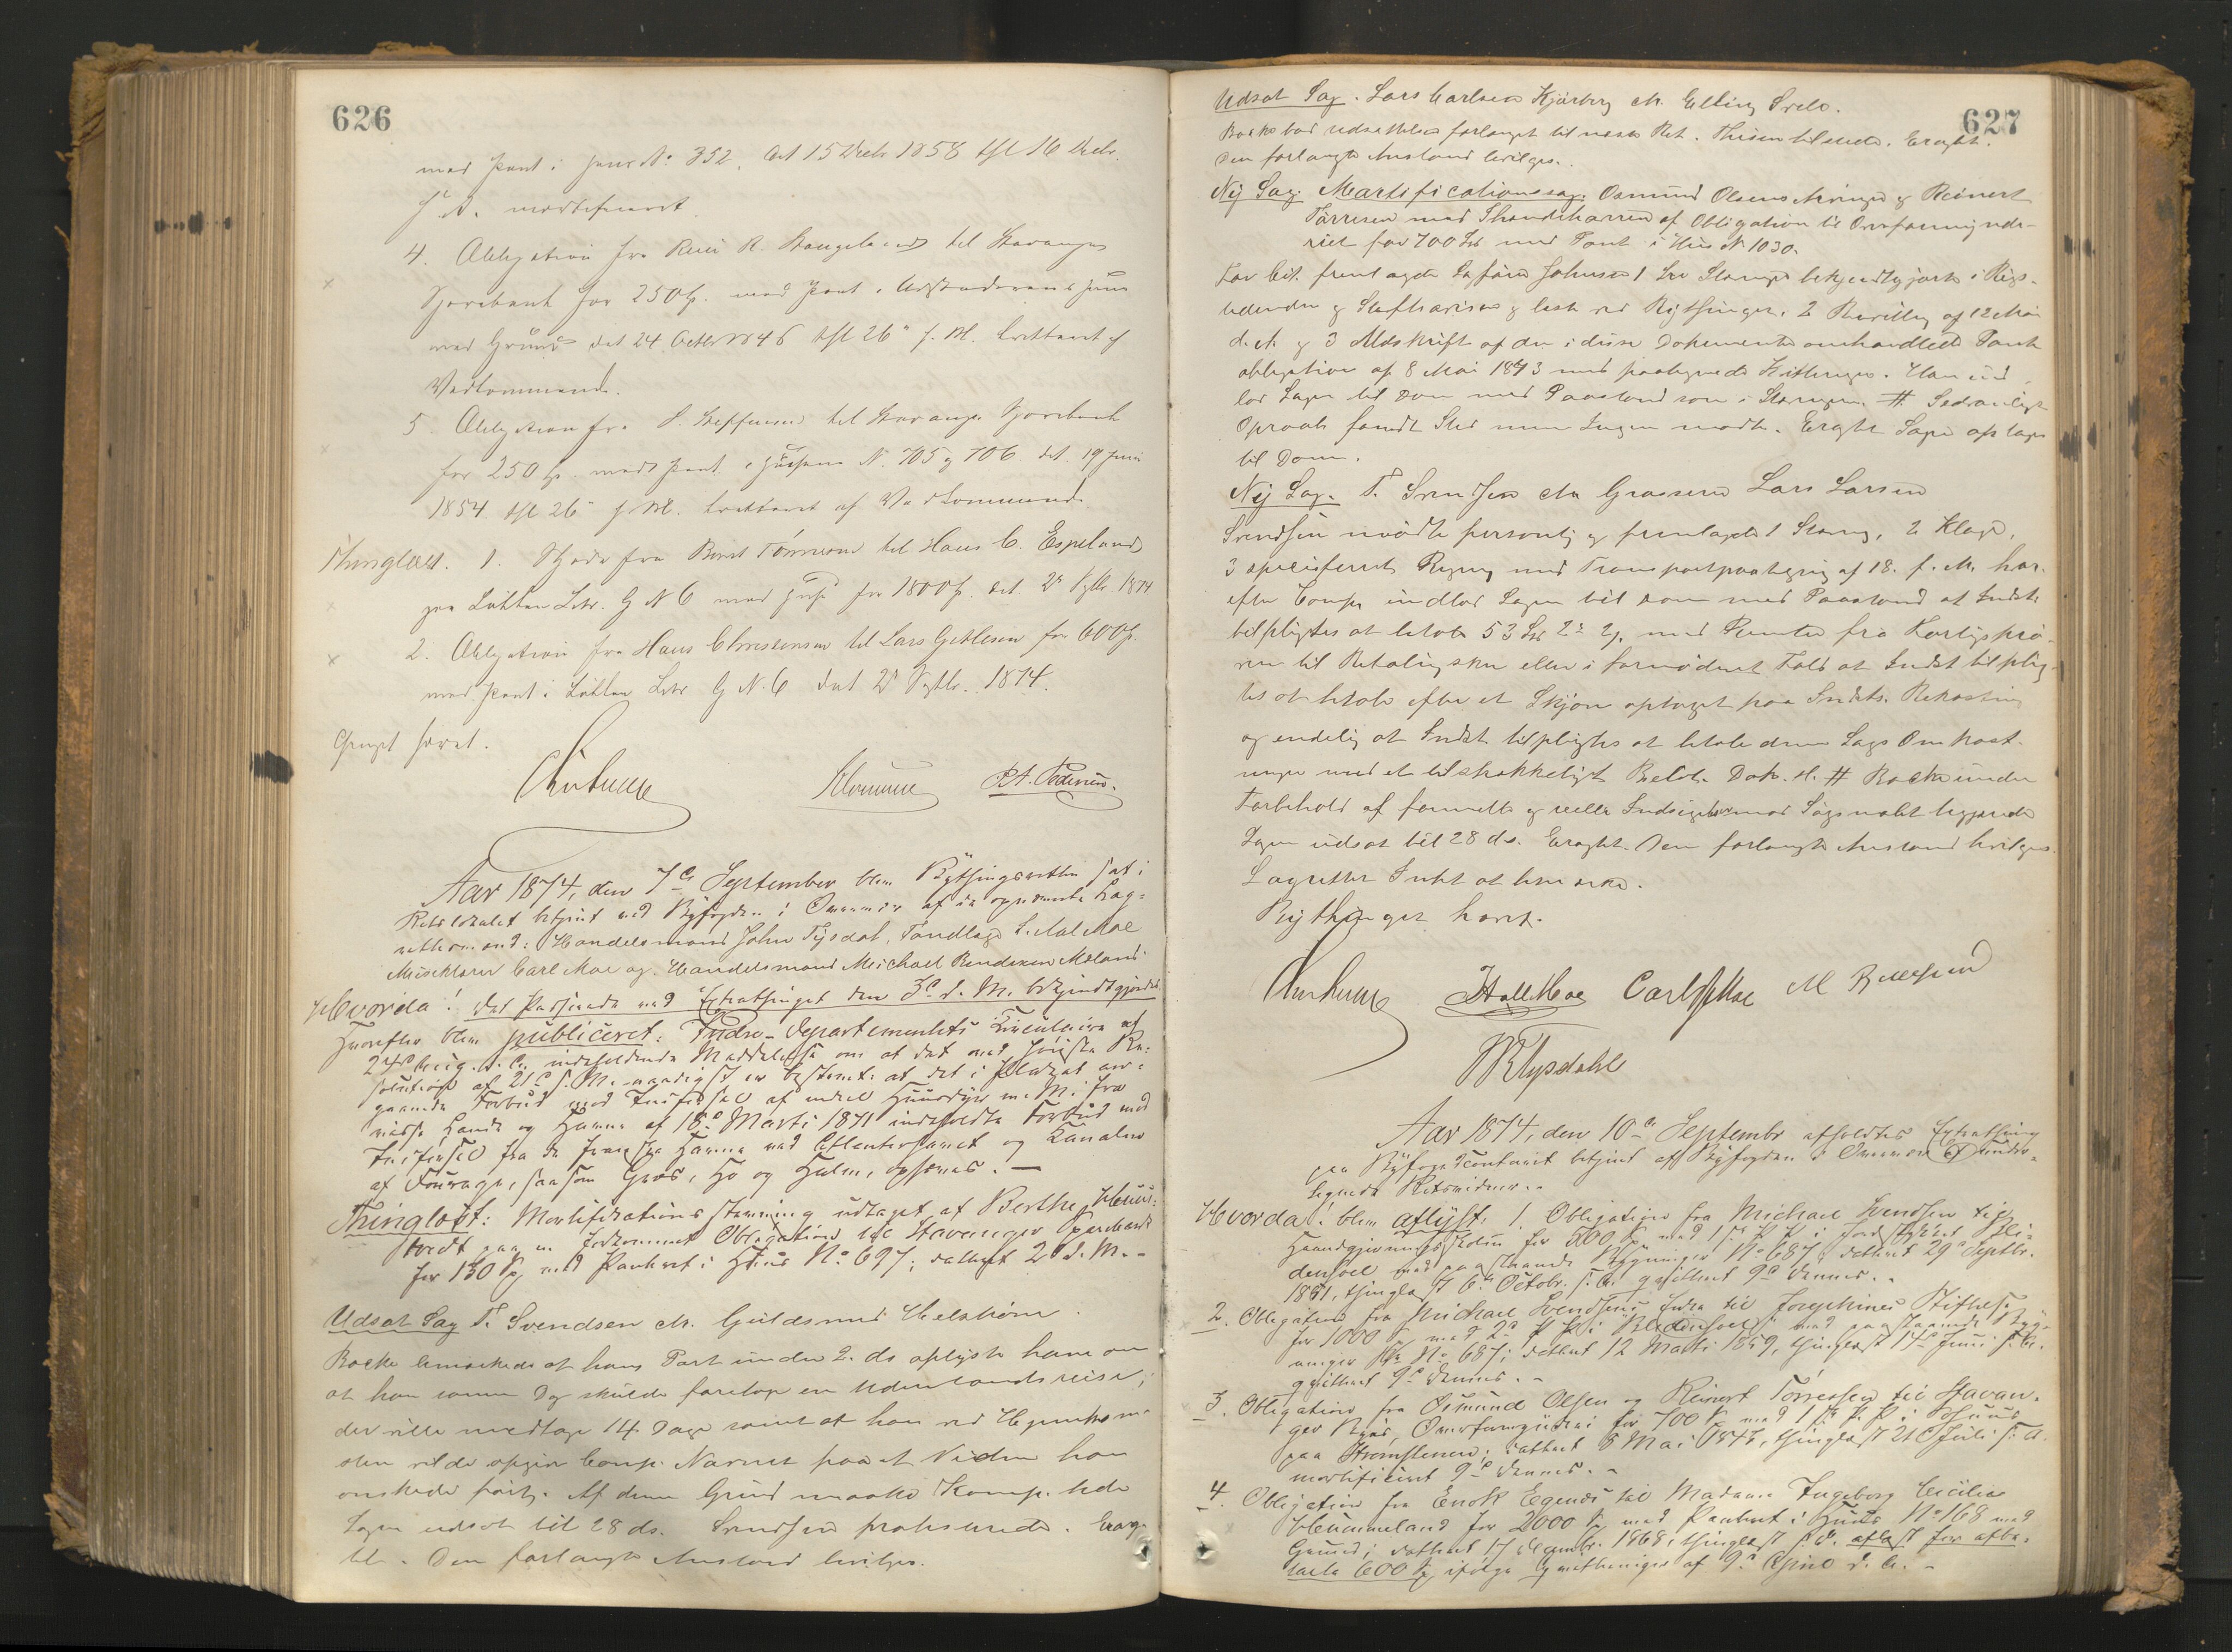 626
med Pant i Huus No 352, dat 15 Decbr 1858 tgl 16 Decbr.
s. A. mortificeret
4. Obligation fra R. Stangeland til Stavanger
Sparebank for 250 Sp. med Pant i Huus
med Grund dat 24 Octbr 1846 tgl 26 s. M. qvitteret af
Vedkommende.
5. Obligation fra S. Steffensen til Stavanger Sparebank
for 250 Sp. med Pant i Husene N. 705 og 706 dat. 19 Juni
1854 tgl 26 s. M. qvitteret af Vedkommende
Thinglæst. 1. Skjøde fra Berent Tønnesen til Hans C. Espeland
paa Løkken Litr. G N 6 med Huse for 1800 Sp. dat. 2 Septbr. 1874
2. Obligation fra Hans Christensen til Lars Gitlesen for 600 Sp.
med Pant i Løkken Litr G N. 6 dat 2 Septbr. 1874.
Thinget hævet.
P.A. Pedersen.
Aar 1874, den 7de September blev Bythingsretten sat i
Retslokalet betjent ved Byfogden i Overvær af de opnævnte Lag-
rettesmænd: Handelsmand John Tysdal, Tandlæge S. Aal Moe
Carl Moe og Handelsmand Michael Bendixen Meland
Hvorda: det Passerede ved Extrathinget den 3de d. M. bekjendtgjordes
Hvorefter blev publiceret: Indre-Departementets Circulaire af
24de Aug. d. A. indeholdende Meddelelse om at det ved høieste Re-
solution af 21de s. M. naadigst er bestemt: at det i Placat an-
gaaende Forbud mod Indførsel af enkelte Huusdyr m. M. fra
visse Lande og Havne af 18de Marti 1871 indeholdte Forbud mod
Indførsel fra de franske Havne ved Atlanterhavet og Kanalen
af Fourage, saasom Græs, Hø og Halm, ophæves. —
Thinglæst: Mortifikationsstævning udtaget af Berthe Huus-
tvedt paa en bortkommet Obligation til Stavanger Sparebank
for 150 Sp med Panteret i Huus No 697; dateret 2 d. M. -
Udsat Sag T. Svendsen ctr. Guldsmed Helstrøm
Backe bemærkede at hans Part under 2. ds oplyste ham om
at han samme Dag skulde foretage en Udenlandsreise,
der ville medtage 14 Dage samt at han ved Hjemkom-
sten vilde opgive Comp. Navnet paa et Vidne han
ønskede ført. Af denne Grund maatte Komp. bede
Sagen udsat til 28 ds. Svendsen protesterede. Erag-
tet. Den forlangte Anstand bevilges.
627
Udsat Sag. Lars Carlsen Kjærberg ctr. Elling Svele.
Backe bad udsættelse forlanget til næste Ret. Thisen tilstede. Eragtet.
Den forlangte Anstand bevilges.
Ny Sag. Mortificationssag. Osmund Olsens Enke og Reinert
Tørresen med Ihændehaveren af Obligation til Overformynde-
riet for 700 Spd med Pant i Hus N 1030.
For Cit. fremlagde Sagfører Johnsen 1 Stevning bekjendtgjort i Rigs-
tidenden og Stiftsavisen og læst ved Bythinget, 2 Bevilling af 12 Mai
d. A. og 3 Udskrift af den i disse Dokumenter omhandlede Pante
obligation af 8 Mai 1843 med paategnede Kvitteringer. Han ind
lod Sagen til Dom med Paastand som i Stevningen. # Sedvanligt
Opraab fandt Sted men Ingen mødte. Eragtet Sagen optages
til Dom.
Ny Sag. T. Svendsen ctr Grosserer Lars Larsen
Svendsen mødte personlig og fremlagde 1 Stevning, 2 Klage,
3 specificeret Regning med Transportpaategning af 18. f. M. hvor-
efter Comp. indlod Sagen til Dom med Paastand at Indst.
tilpligtes at betale 53 Spd 2 med Renter fra Forligsprø-
ven til Betaling sker eller i fornødent Fald at Indst tilplig-
tes at betale efter et Skjøn optaget paa Indsts. Bekostning
og endelig at Indst. tilpligtes at betale denne Sags Omkost-
ninger med et tilstrækkeligt Beløb. Dok. H. # Backe under
Forbehold af formelle og reelle Indsigelser mod Søgsmaalet begjærede
Sagen udsat til 28 ds. Eragtet. Den forlangte Anstand bevilges.
Lagretten Intet at bemærke.
Bythinget hævet.
S Aall Moe Carl Moe M Bendixen
J R Tysdahl
Aar 1874, den 10de Septembr afholdtes Extrathing
paa Byfogedcontoiret betjent af Byfogden i Overvær af under-
tegnede Retsvidner. -
Hvorda: blev aflyst: 1. Obligation fra Michael Svendsen til
Haandgjerningsskolen for 500 Sp med 1ste P. P. i
med paastaaende Bygninger No 687; dateret 29 Septbr.
1861, thinglæst 6te Octob. s. A. qvitteret 9de dennes. -
2. Obligation fra Michael Svendsens Enke til Josephines Stiftelse
for 1000 Sp med 2den P. P. i med paastaaende Byg-
ninger No 687; dateret 12 Marti 1859, thinglæst 14de Juni s. A.
qvitteret 9de dennes. -
3. Obligation fra Osmund Olsen og Reinert Tørressen til Stavan-
ger Byes Overformynderi for 700 Sp med 1ste P. P. i Huus
paa Strømstenen; dateret 8 Mai 1843, thinglæst 21de Juli s. A.
mortificeret 9de dennes. -
4. Obligation fra Enok Egenes til Madame Ingeborg Cecilie
Hummeland for 2000 Sp med Panteret i Huus No 168 med
Grund; dateret 17 Decembr. 1868, thinglæst s. D. aflæst for afbe-
talte 600 Sp ifølge Qvitteringer af 9de April d. A. -